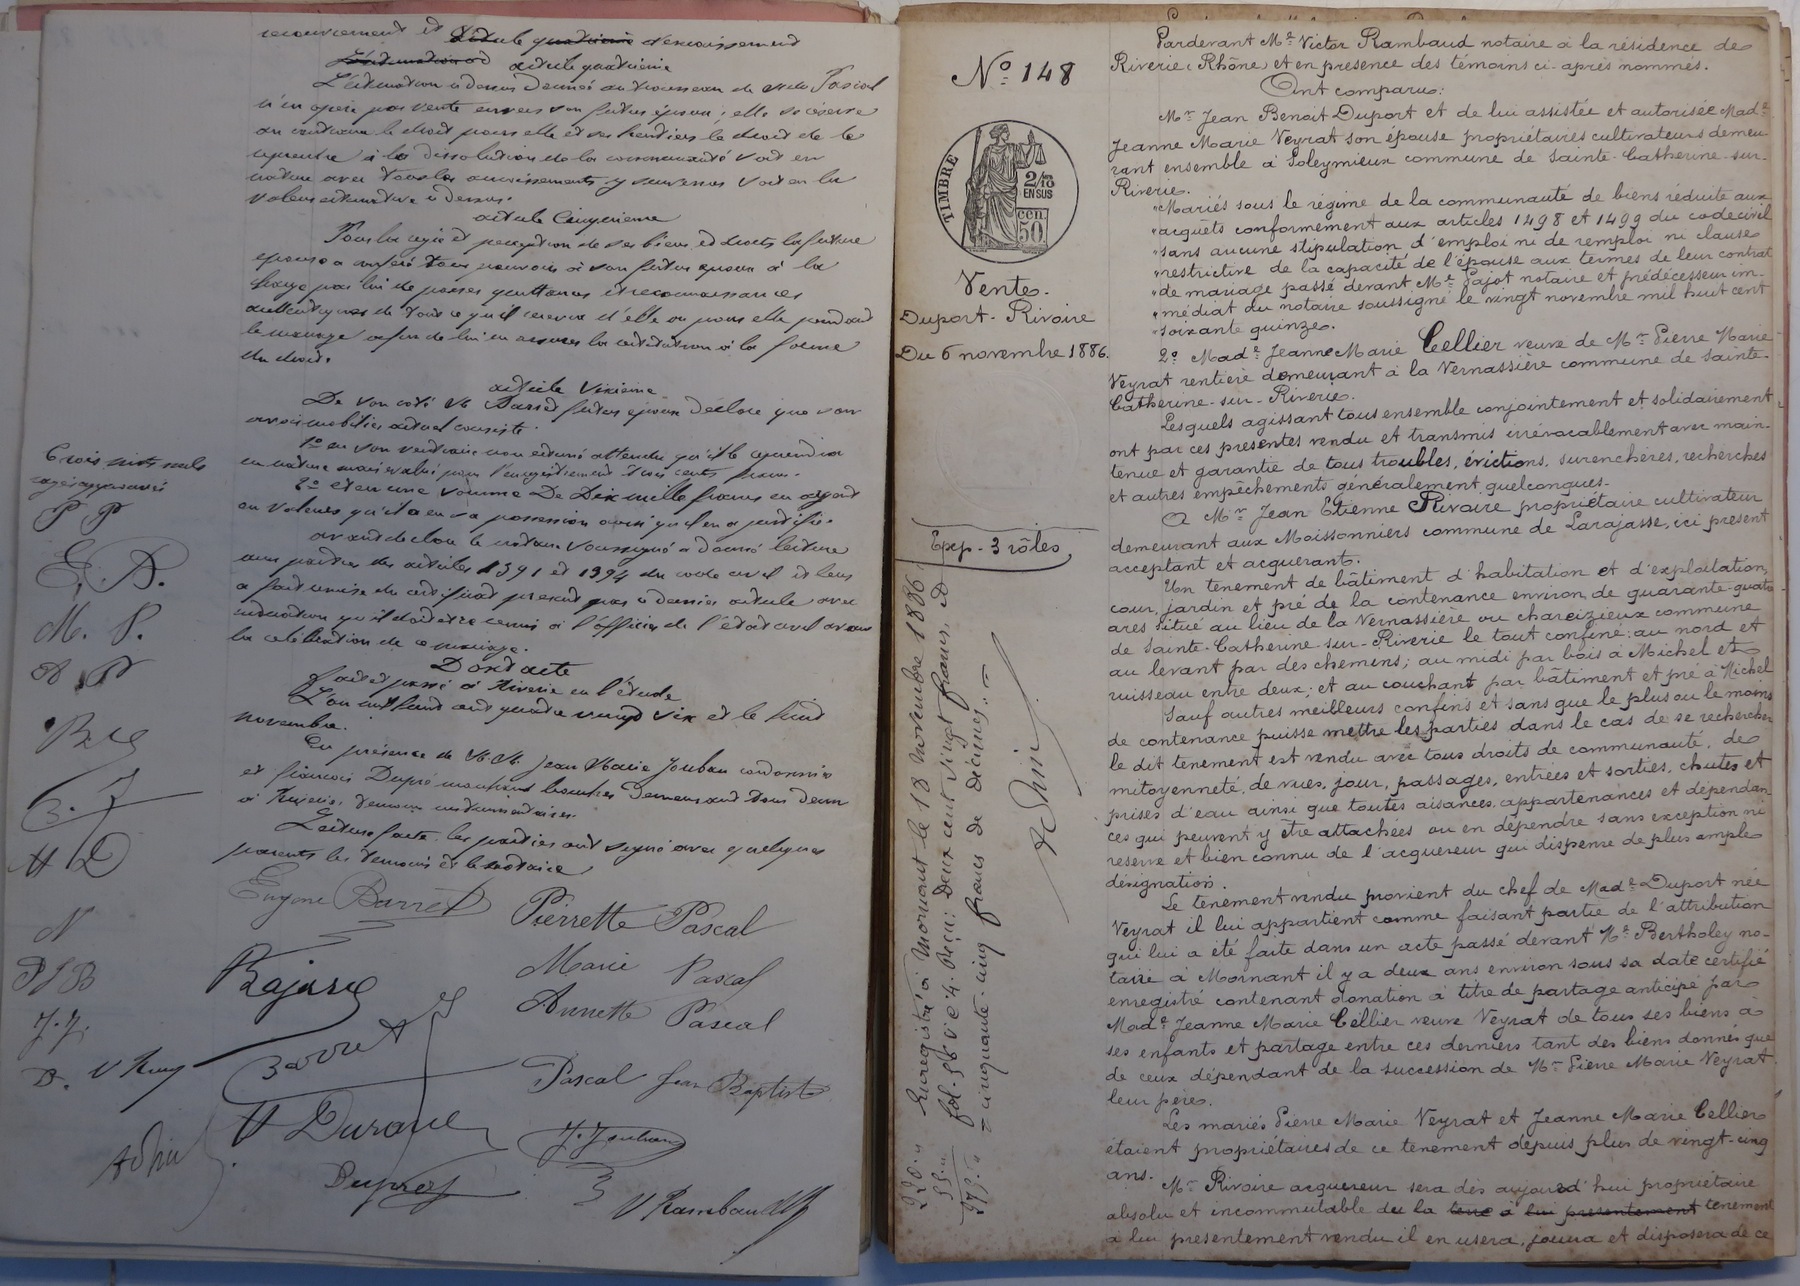 recouvrement et ~~article quatrième~~ d'encaissement
article quatrième
L'estimation ci dessus donnée au trousseau de Melle Pascal
n'en opère pas vente envers son futur époux ; elle se réserve
au contraire le droit pour elle et ses héritiers le droit de le
reprendre à la dissolution de la communauté soit en
nature avec tous les accroissements y survenus soit en la
valeur estimative ci dessus.
article Cinquième
Pour la régie et perception de ses biens et droits la future
épouse a conféré tous pouvoirs à son futur époux à la
charge par lui de passer quittances et reconnaissances
authentiques de tout ce qu'il recevra d'elle ou pour elle pendant
le mariage afin de lui en assurer la restitution à la forme
du droit.
article Sixième
De son coté M. Barret futur époux déclare que son
avoir mobilier actuel consiste :
1º en son vestiaire non estimé attendu qu'il le reprendra
en nature mais évalué pour l'enregistrement trois cents francs.
2º et en une somme De Dix mille francs en argent
ou valeurs qu'il a en sa possession ainsi qu'il en a justifié.
avant de clore le notaire soussigné a donné lecture
aux parties des articles 1391 et 1394 du code civil et leur
a fait remise du certificat prescrit par ce dernier article avec
indication qu'il doit être remis à l'officier de l'état civil avant
la célébration de ce mariage.
Dont acte
fait et passé à Riverie en l'étude
L'an mil huit cent quatre vingt six et le huit
novembre.
En présence de MM. Jean Marie Jouban cordonnier
et François Dupré marchand boucher demeurant tous deux
à Riverie, témoins instrumentaires.
Lecture faite les parties ont signé avec quelques
parents les témoins et le notaire
Trois mots nuls
rayés approuvés
P P
E. B.
M. P.
A P
N
P J B
J. J.
D. V Ramb
Eugène Barret Pierrette Pascal
Marie Pascal
Annette Pascal
Barret
Pascal Jean Baptiste
Durand
J. Jouban
V Rambaud
Nº 148
TIMBRE
2/10
EN SUS
cen.
50
Vente.
Duport - Rivoire
Du 6 novembre 1886.
Exp. 3 rôles
Enregistré à Mornant le 13 Novembre 1886
Reçu: Deux cent vingt francs, et
cinquante-cinq francs de décimes.
Pardevant Me Victor Rambaud notaire à la résidence de
Riverie (Rhône) et en présence des témoins ci-après nommés.
Ont comparu:
Mr Jean Benoit Duport et de lui assistée et autorisée Made
Jeanne Marie Veyrat son épouse propriétaires cultivateurs demeu
rant ensemble à Soleymieux commune de Sainte-Catherine-sur-
Riverie.
"Mariés sous le régime de la communauté de biens réduite aux
"acquêts conformément aux articles 1498 et 1499 du code civil
"sans aucune stipulation d'emploi ni de remploi ni clause
"restrictive de la capacité de l'épouse aux termes de leur contrat
"de mariage passé devant Me Pajot notaire et prédécesseur im-
"médiat du notaire soussigné le vingt novembre mil huit cent
"soixante quinze.
2º Made Jeanne Marie Cellier veuve de Mr Pierre Marie
Veyrat rentière demeurant à la Vernassière commune de Sainte-
Catherine-sur-Riverie.
Lesquels agissant tous ensemble conjointement et solidairement
ont par ces présentes vendu et transmis irrévocablement avec main-
tenue et garantie de tous troubles, évictions, surenchères, recherches
et autres empêchements généralement quelconques.
A Mr Jean Etienne Rivoire propriétaire cultivateur
demeurant aux Moissonniers commune de Larajasse, ici présent
acceptant et acquérant.
Un tènement de bâtiment d'habitation et d'exploitation,
cour, jardin et pré de la contenance environ de quarante-quatre
ares situé au lieu de la Vernassière ou chareizieux commune
de Sainte-Catherine-sur-Riverie le tout confiné: au nord et
au levant par des chemins; au midi par bois à Michel et
ruisseau entre deux; et au couchant par bâtiment et pré à Michel
Sauf autres meilleurs confins et sans que le plus ou le moins
de contenance puisse mettre les parties dans le cas de se rechercher
le dit tènement est vendu avec tous droits de communauté, de
mitoyenneté, de vues, jour, passages, entrées et sorties, chutes et
prises d'eau ainsi que toutes aisances, appartenances et dépendan
ces qui peuvent y être attachées ou en dépendre sans exception ni
réserve et bien connu de l'acquéreur qui dispense de plus ample
désignation.
Le tènement vendu provient du chef de Made Duport née
Veyrat il lui appartient comme faisant partie de l'attribution
qui lui a été faite dans un acte passé devant Me Bertholey no-
taire à Mornant il y a deux ans environ sous sa date certifié
enregistré contenant donation à titre de partage anticipé par
Made Jeanne Marie Cellier veuve Veyrat de tous ses biens à
ses enfants et partage entre ces derniers tant des biens donnés que
de ceux dépendant de la succession de Mr Pierre Marie Veyrat
leur père.
Les mariés Pierre Marie Veyrat et Jeanne Marie Cellier
étaient propriétaires de ce tènement depuis plus de vingt-cinq
ans.
Mr Rivoire acquéreur sera dès aujourd'hui propriétaire
absolu et incommutable du la ~~terre à lui présentement~~ tènement
à lui présentement vendu il en usera, jouira et disposera de ce